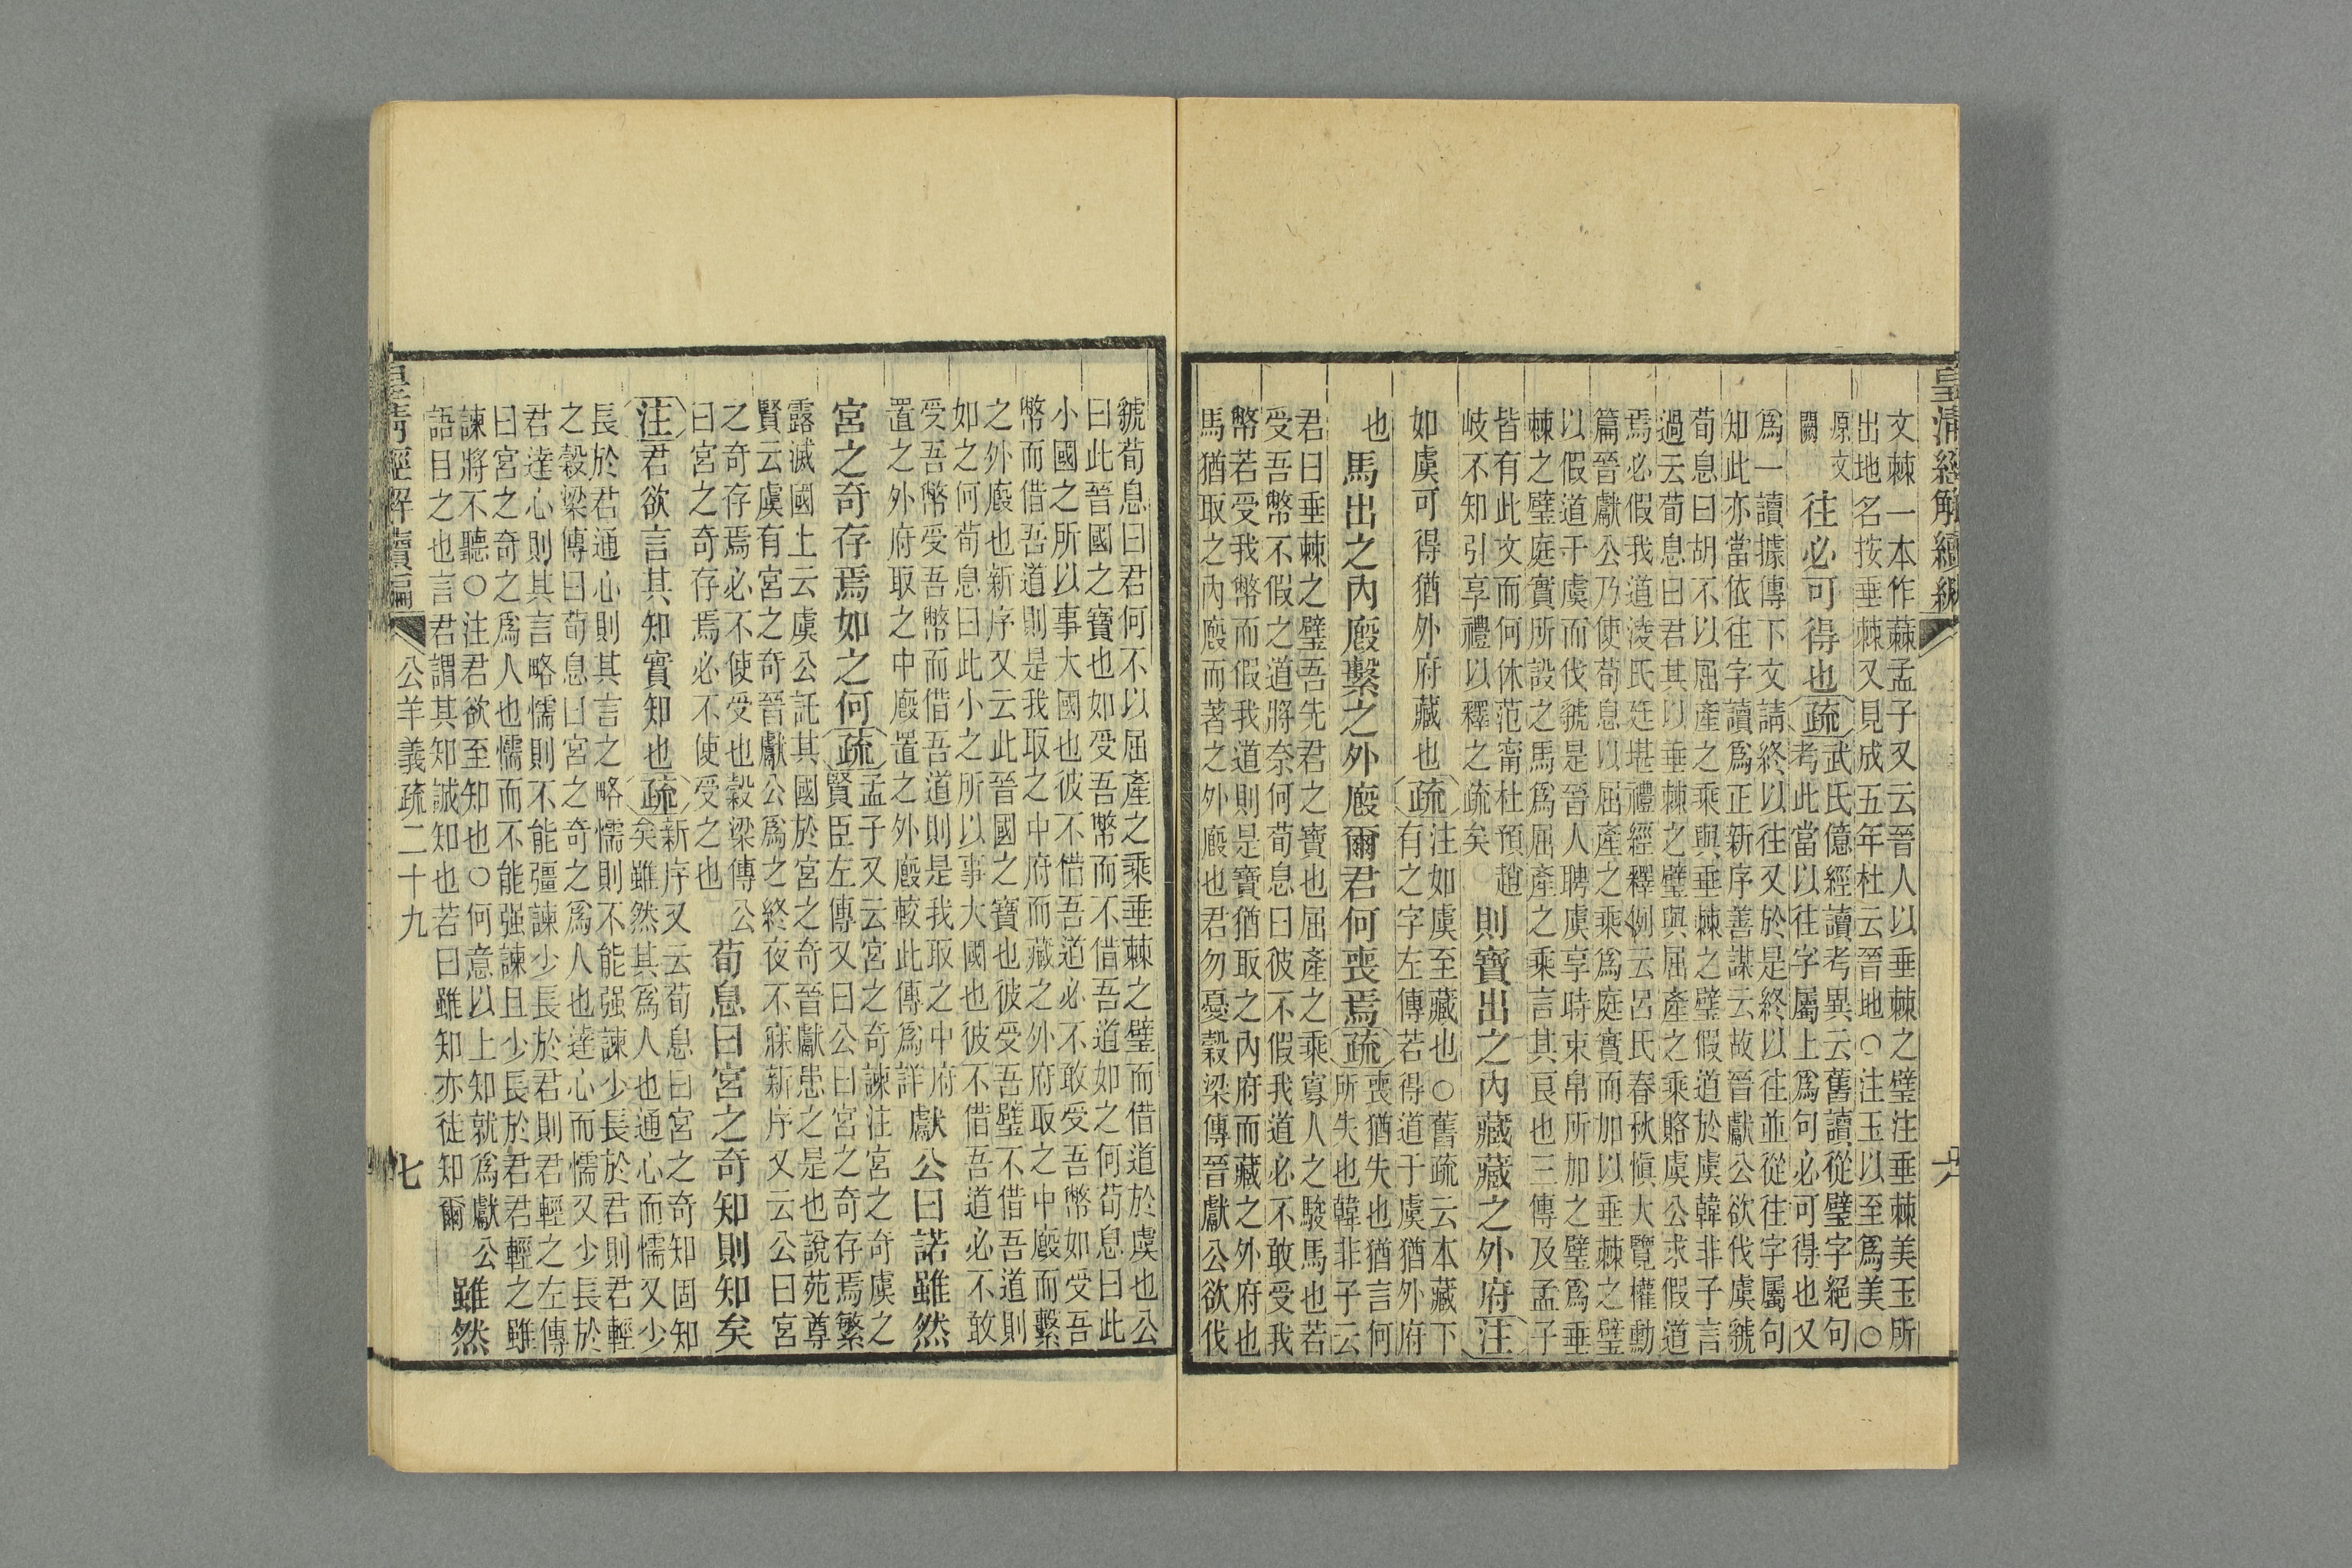 皇清經解續編
六
文棘一本作蕀孟子又云晉人以垂棘之璧注垂棘美玉所
出地名按垂棘又見成五年杜云晉地○注玉以至爲美○
原文
闕
往必可得也疏
武氏億經讀考異云舊讀從璧字絕句
考此當以往字屬上爲句必可得也又
爲一讀據傳下文請終以往又於是終以往並從往字屬句
知此亦當依往字讀爲正新序善謀云故晉獻公欲伐虞虢
荀息曰胡不以屈產之乘與垂棘之璧假道於虞韓非子言
過云荀息曰君其以垂棘之璧與屈產之乘賂虞公求假道
焉必假我道淩氏廷堪禮經釋例云呂氏春秋慎大覽權勳
篇晉獻公乃使荀息以屈產之乘爲庭實而加以垂棘之璧
以假道于虞而伐虢是晉人聘虞享時束帛所加之璧爲垂
棘之璧庭實所設之馬爲屈產之乘言其良也三傳及孟子
皆有此文而何休范甯杜預趙
岐不知引享禮以釋之疏矣
則寶出之內藏藏之外府注
如虞可得猶外府藏也疏
注如虞至藏也○舊疏云本藏下
有之字左傳若得道于虞猶外府
也
馬出之內廄繫之外廄爾君何喪焉疏
喪猶失也猶言何
所失也韓非子云
君曰垂棘之璧吾先君之寶也屈產之乘寡人之駿馬也若
受吾幣不假之道將奈何荀息曰彼不假我道必不敢受我
幣若受我幣而假我道則是寶猶取之內府而藏之外府也
馬猶取之內廄而著之外廄也君勿憂穀梁傳晉獻公欲伐
虢荀息曰君何不以屈產之乘垂棘之璧而借道於虞也公
曰此晉國之寶也如受吾幣而不借吾道如之何荀息曰此
小國之所以事大國也彼不借吾道必不敢受吾幣如受吾
幣而借吾道則是我取之中府而藏之外府取之中廄而繫
之外廄也新序又云此晉國之寶也彼受吾璧不借吾道則
如之何荀息曰此小之所以事大國也彼不借吾道必不敢
受吾幣受吾幣而借吾道則是我取之中府
置之外府取之中廄置之外廄較此傳爲詳
獻公曰諾雖然
宮之奇存焉如之何疏
孟子又云宮之奇諫注宮之奇虞之
賢臣左傳又曰公曰宮之奇存焉繁
露滅國上云虞公託其國於宮之奇晉獻患之是也說苑尊
賢云虞有宮之奇晉獻公爲之終夜不寐新序又云公曰宮
之奇存焉必不使受也穀梁傳公
曰宮之奇存焉必不使受之也
荀息曰宮之奇知則知矣
注君欲言其知實知也疏
新序又云荀息曰宮之奇知固知
矣雖然其爲人也通心而懦又少
長於君通心則其言之略懦則不能强諫少長於君則君輕
之穀梁傳曰荀息曰宮之奇之爲人也達心而懦又少長於
君達心則其言略懦則不能彊諫少長於君則君輕之左傳
曰宮之奇之爲人也懦而不能强諫且少長於君君輕之雖
諫將不聽○注君欲至知也○何意以上知就爲獻公
語目之也言君謂其知誠知也若曰雖知亦徒知爾
雖然
皇清經解續編
公羊義疏二十九
七